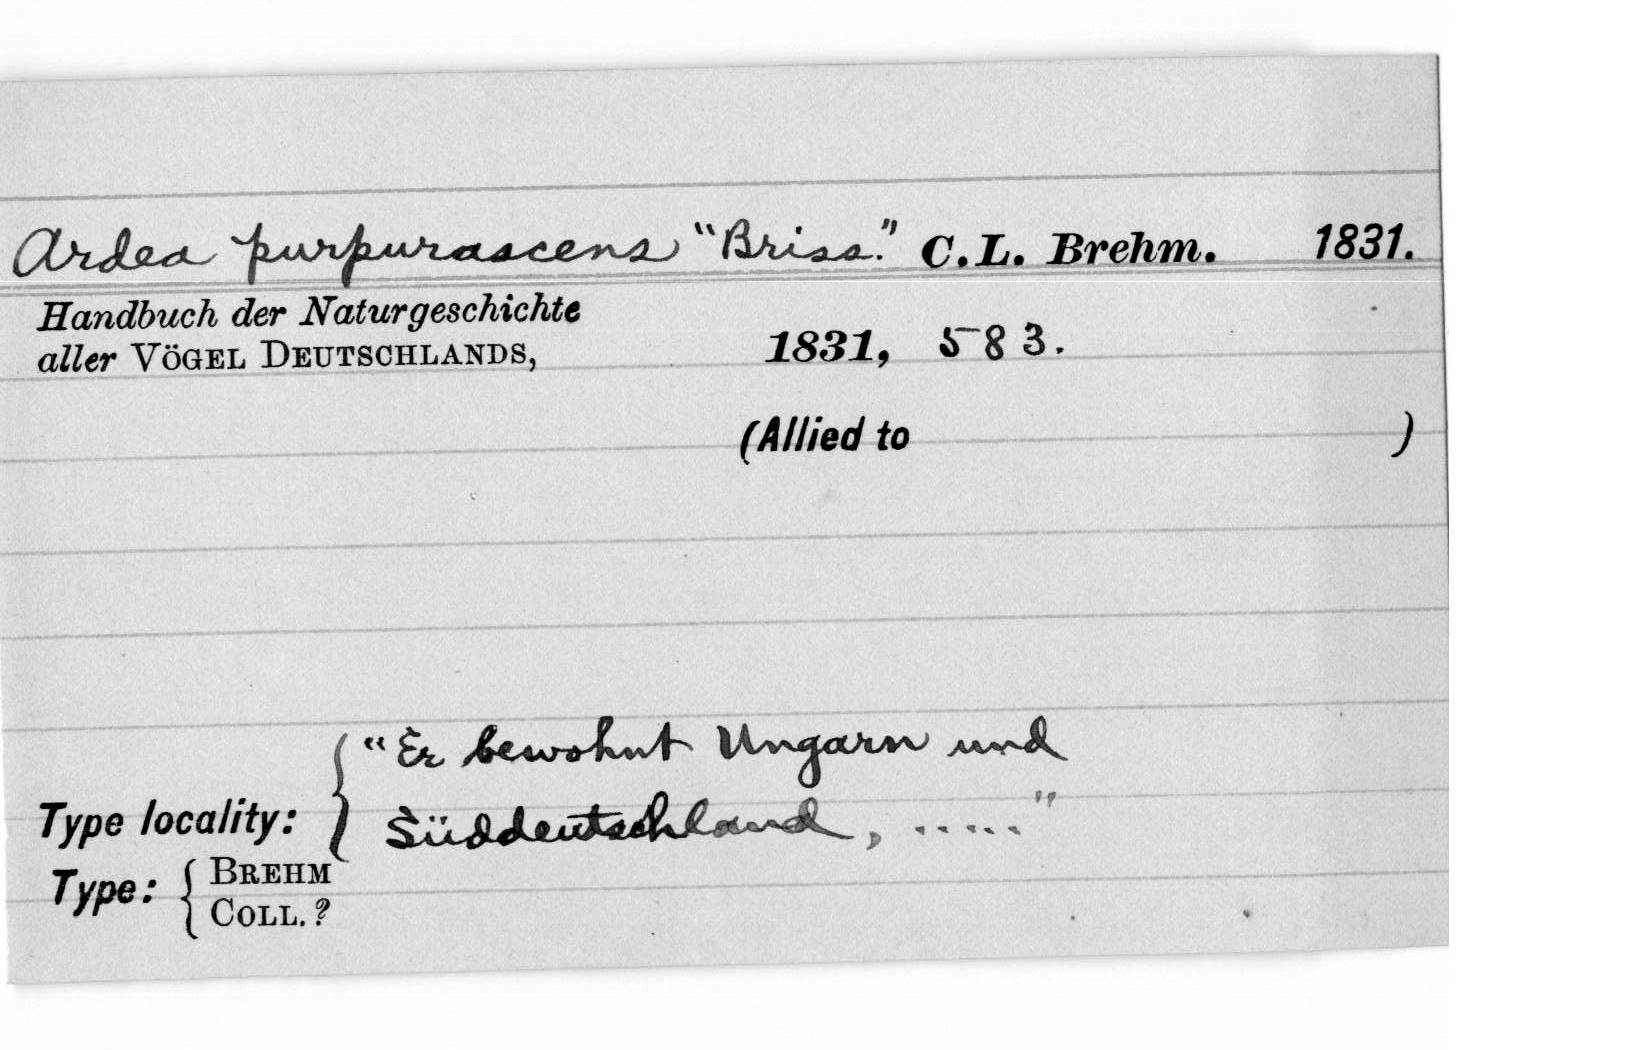 Ardea purpurascens "Briss." C.L. Brehm. 1831.
Handbuch der Naturgeschichte
aller VÖGEL DEUTSCHLANDS, 1831, 583.
(Allied to )
"Er bewohnt Ungarn und
Type locality: { Süddeutschland, ....."
Type: { BREHM
COLL. ?